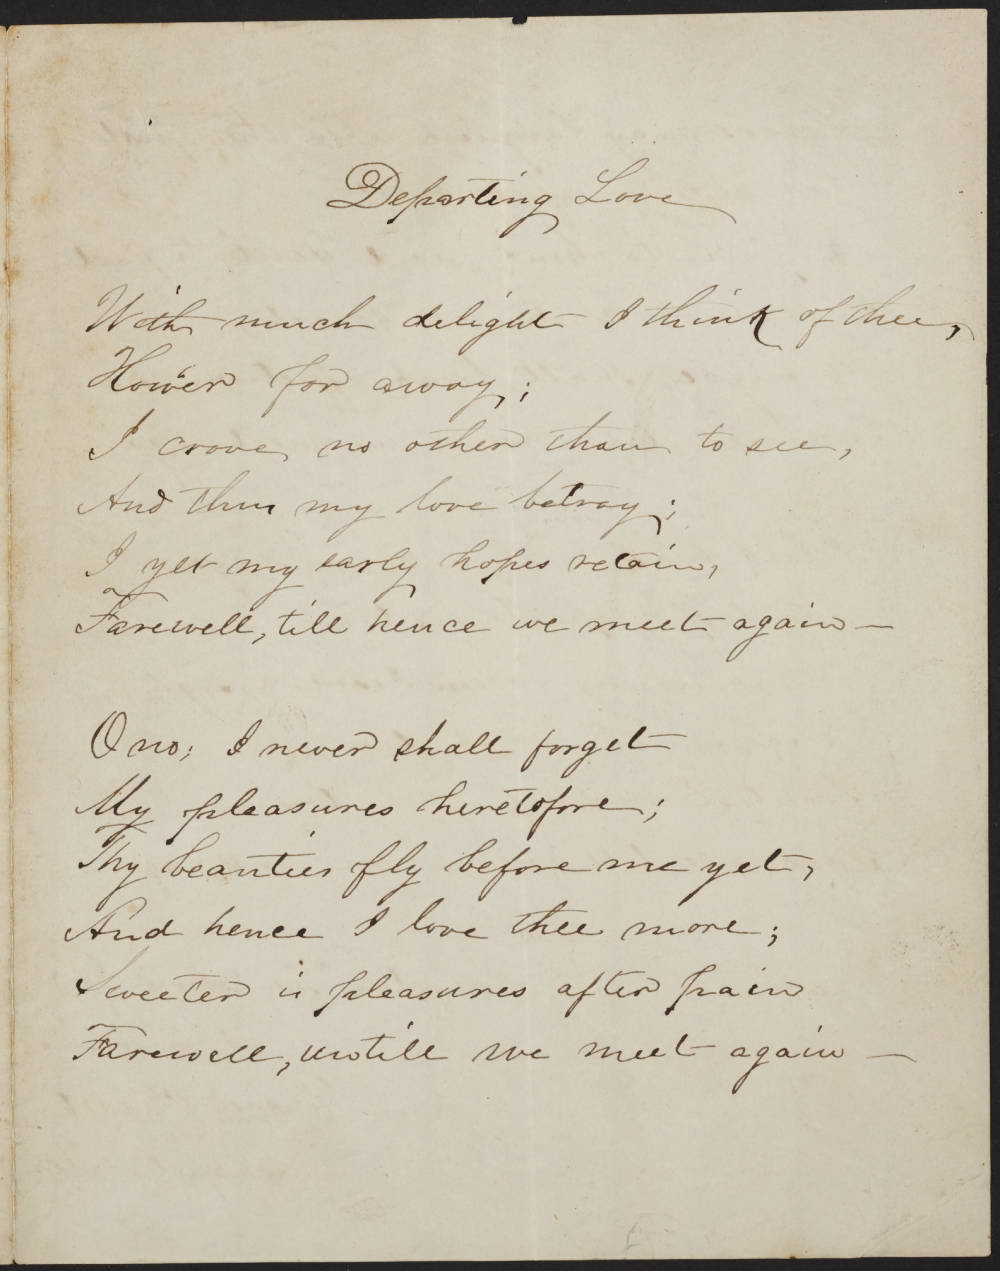 Departing Love
With much delight I think of thee,
How'er far away;
I crave no other than to see,
And thus my love betray;
I yet my early hopes retain,
Farewell, till hence we meet again—
O no; I never shall forget
My pleasures heretofore;
Thy beauties fly before me yet,
And hence I love thee more;
Sweeter is pleasures after pain
Farewell, untill we meet again—